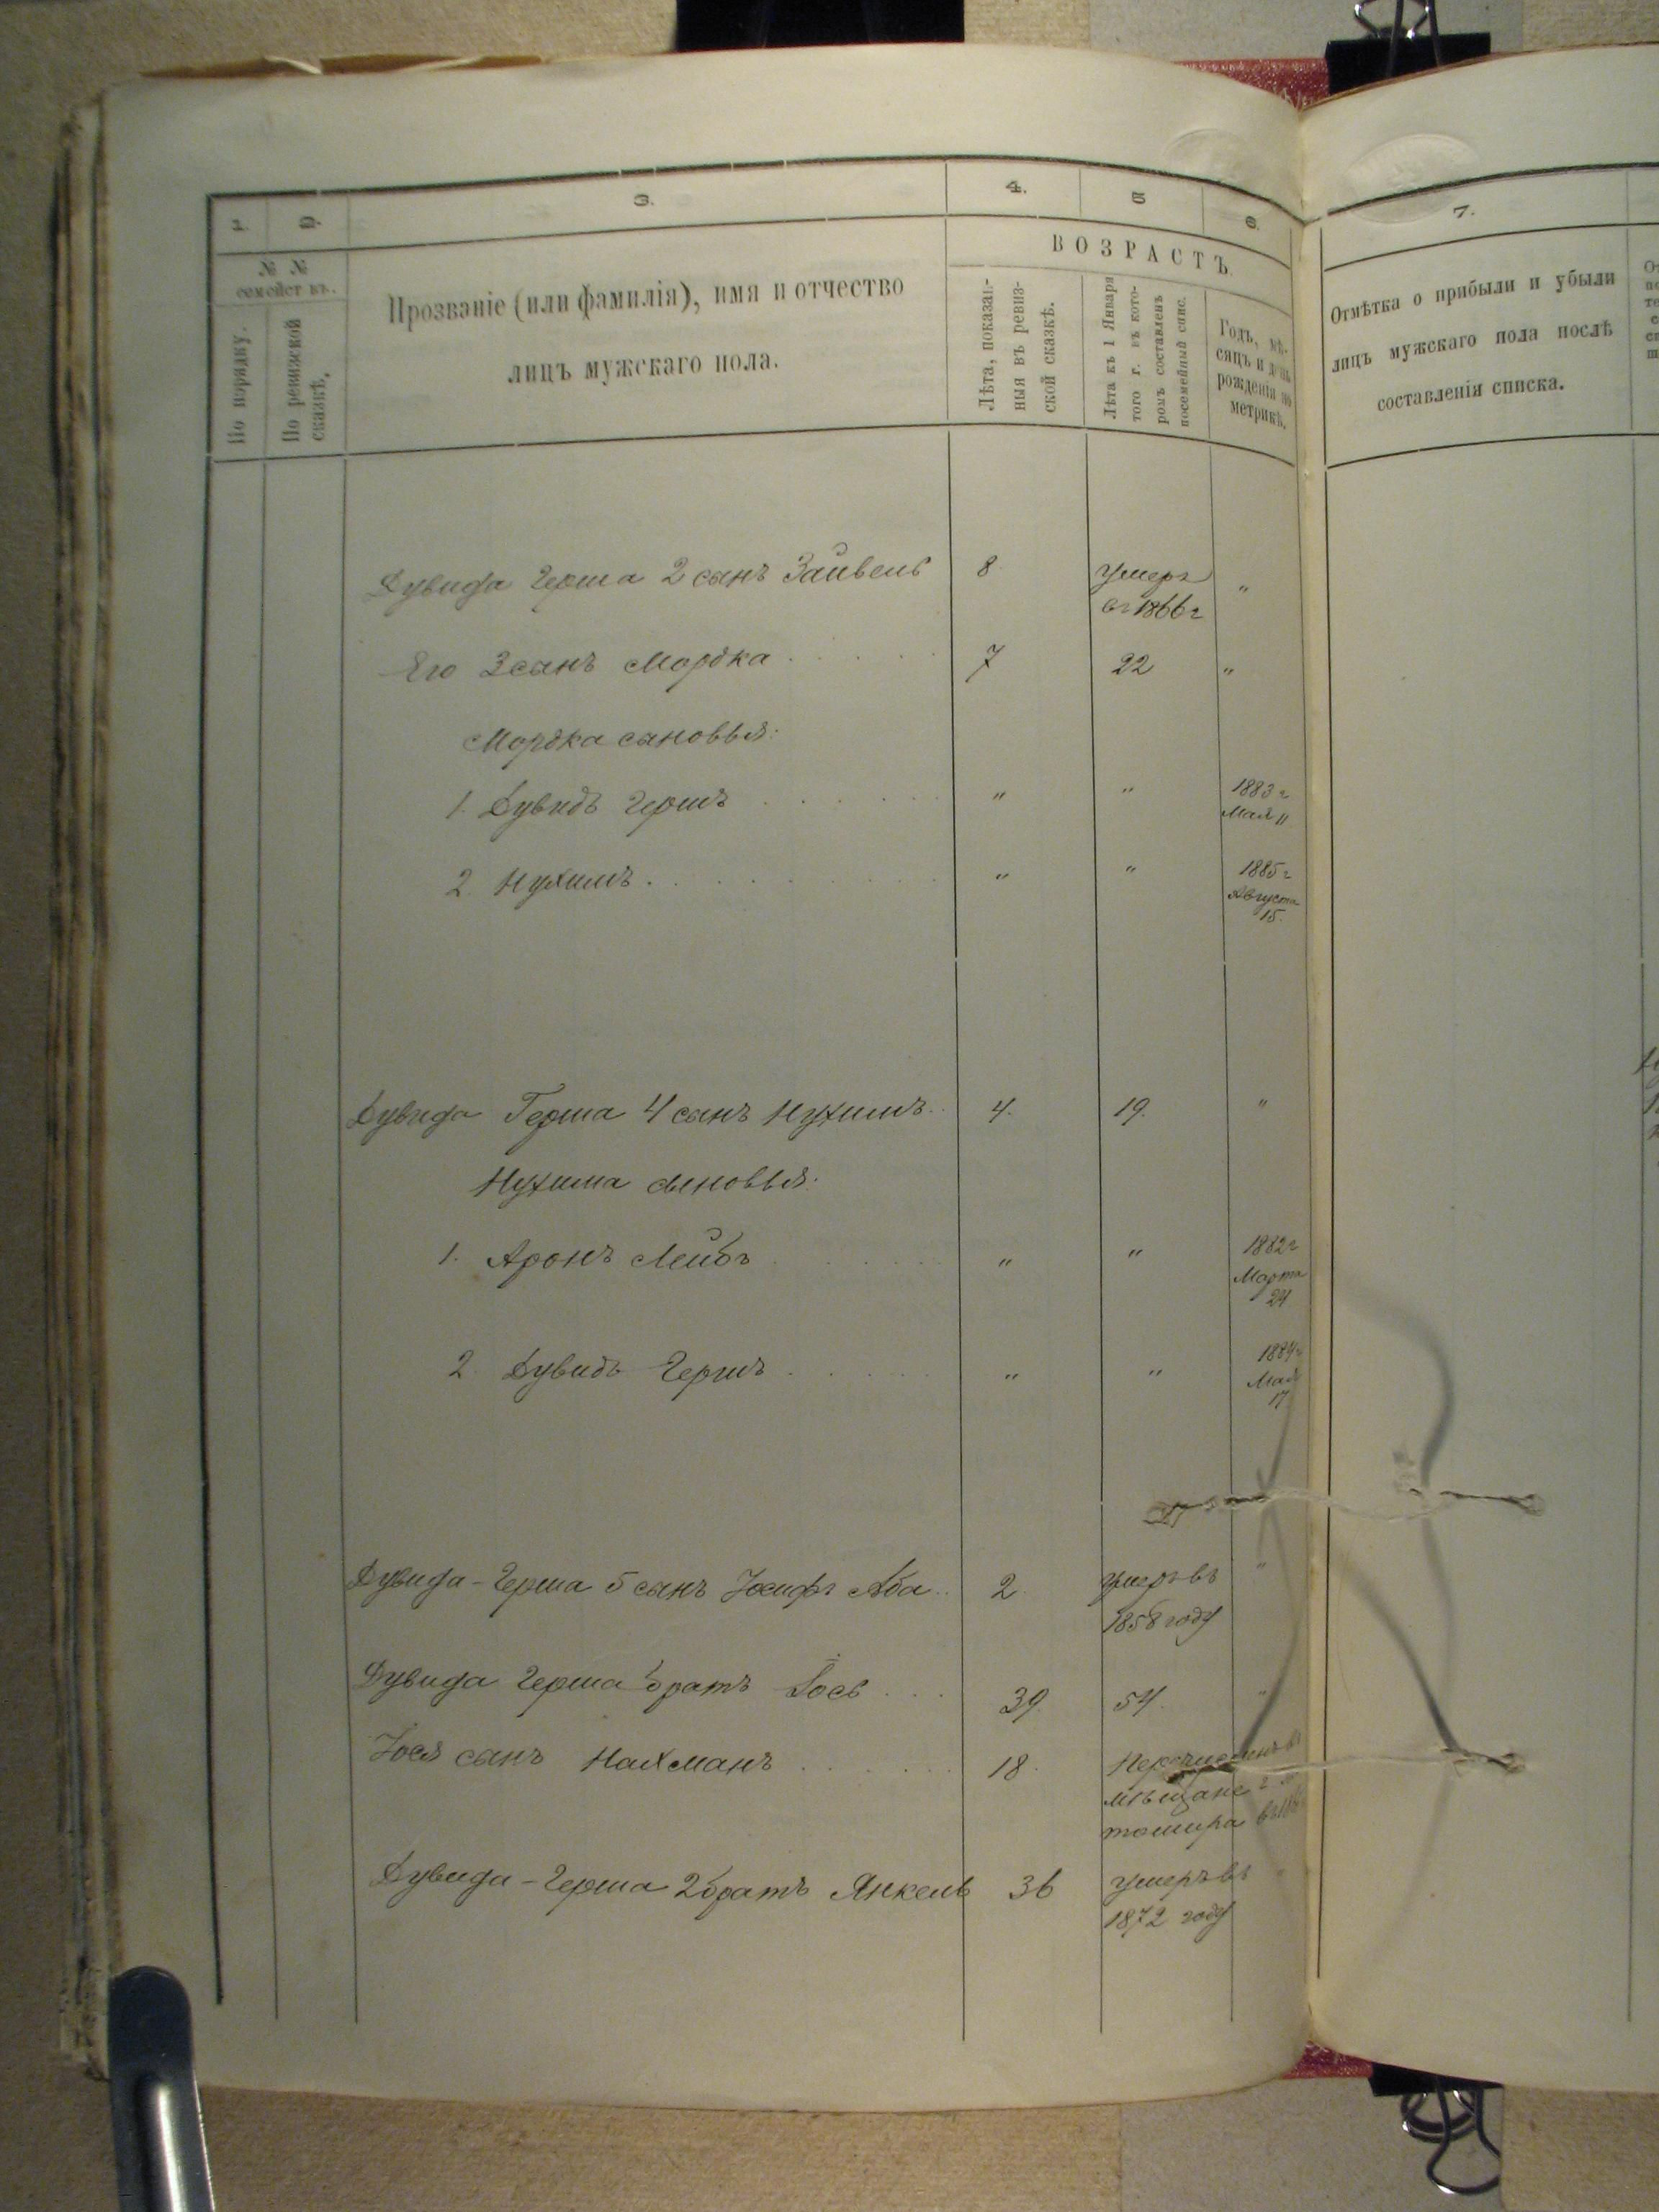 1. 2. 3. 4. 5 6. 7.
№ №
семействъ.
По порядку.
По ревизской
сказкѣ.
Прозваніе (или фамилія), имя и отчество
лицъ мужскаго пола.
ВОЗРАСТЪ.
Лѣта, показан-
ныя въ ревиз-
ской сказкѣ.
Лѣта къ 1 Января
того г. въ кото-
ромъ составленъ
посемейный спис.
Годъ, мѣ-
сяцъ и день
рожденія по
метрикѣ.
Отмѣтка о прибыли и убыли
лицъ мужскаго пола послѣ
составленія списка.
Дувида Герша 2 сынъ Зайвель 8 Умеръ "
въ 1866 г
Его 3 сынъ Мордка 7 22 "
Мордка сыновья:
1. Дувидъ Гершъ " " 1883 г
Мая 11
2. Нухимъ " " 1885 г
Августа
15.
Дувида Герша 4 сынъ Нухимъ 4. 19. "
Нухима сыновья:
1. Аронъ Лейбъ " " 1882 г
Марта
24
2. Дувидъ Гершъ " " 1884 г
Мая
17
Дувида-Герша 5 сынъ Іосифъ Аба 2. Умеръ въ "
1858 году
Дувида Герша братъ Іось 39. 54. "
Іося сынъ Нахманъ 18. Перечисленъ въ
мѣщане г.
Дувида-Герша 2 братъ Янкель 36 Умеръ въ
1872 году